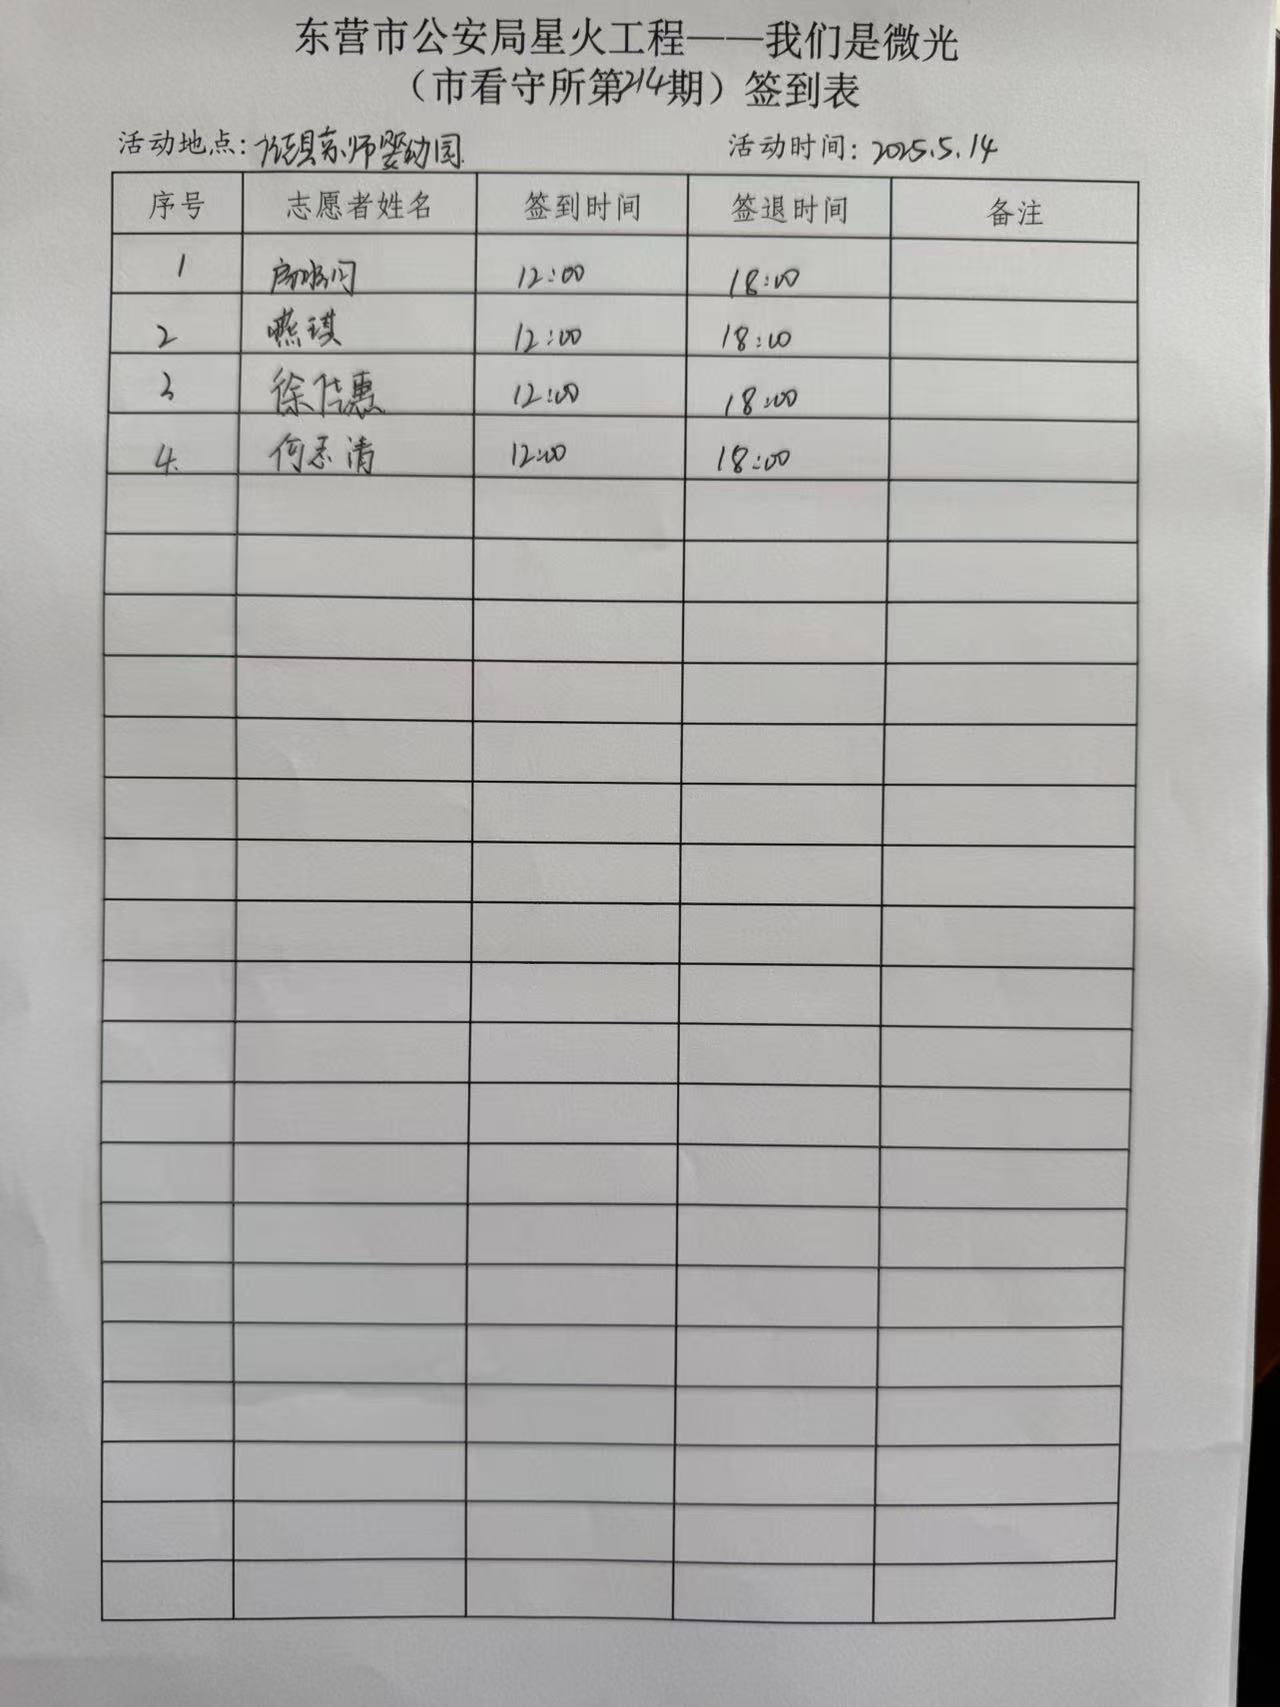 东营市公安局星火工程——我们是微光
（市看守所第214期）签到表
活动地点：东师婴幼园 活动时间：2025.5.14
序号 志愿者姓名 签到时间 签退时间 备注
1 12:00 18:00
2 燕琪 12:00 18:00
3 徐传惠 12:00 18:00
4. 何志清 12:00 18:00